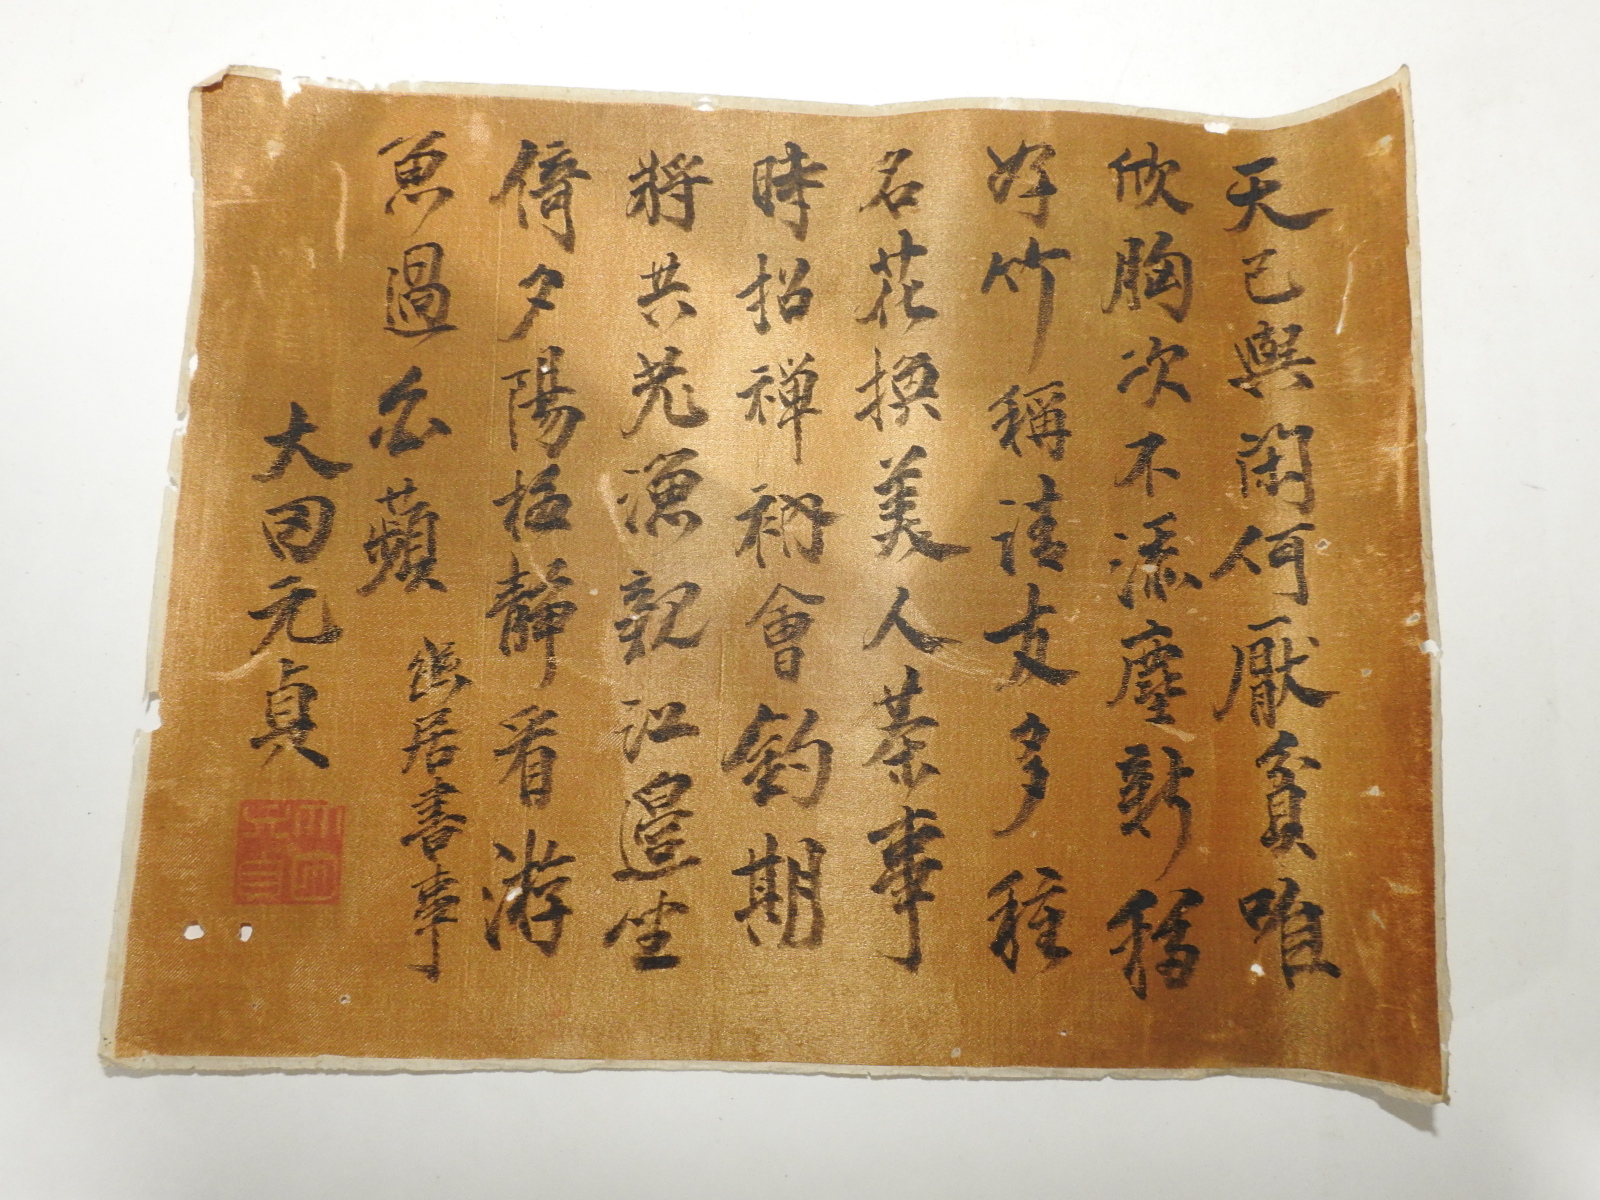 天已與閑何厭貧唯
欣胸次不添塵新移
好竹稱清友多種
名花換美人茶事
時招禅衲會釣期
將共老漁親江邊坐
倚夕陽極静看游
魚過白蘋
幽居書事
大同元貞